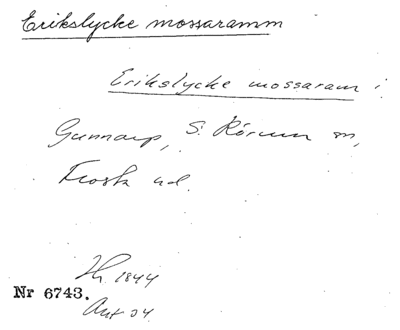 Erikslycke mossaramm
Erikslycke mossaram i
Gunnarp, S. Rörum sn,
Frosta hd.
1844
Nr 6743.
Ant 04